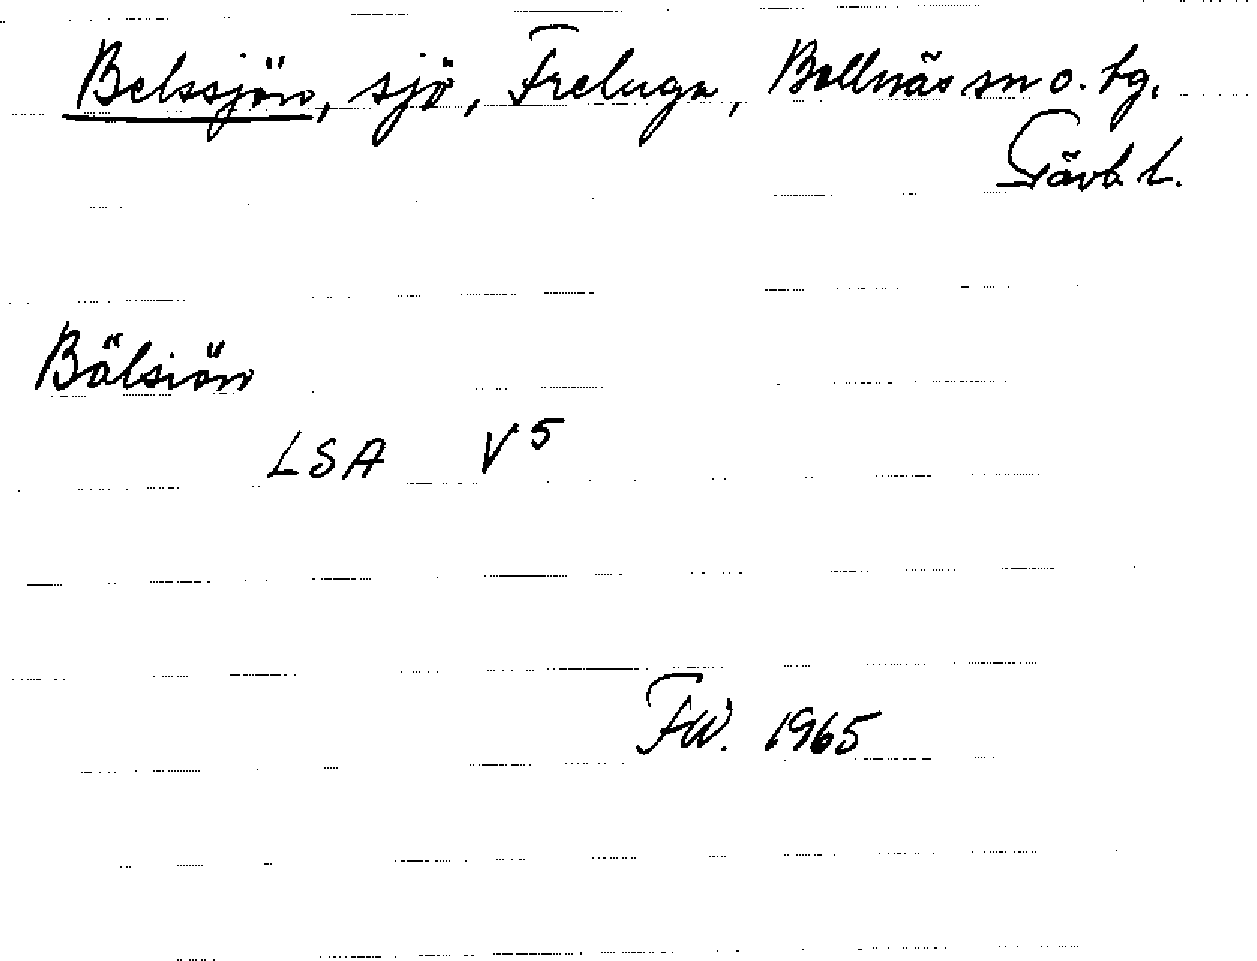 Belssjön, sjö, Freluga, Bollnäs sn o. tg.
Gävb. l.
Bälsiön
LSA V 5
FW. 1965